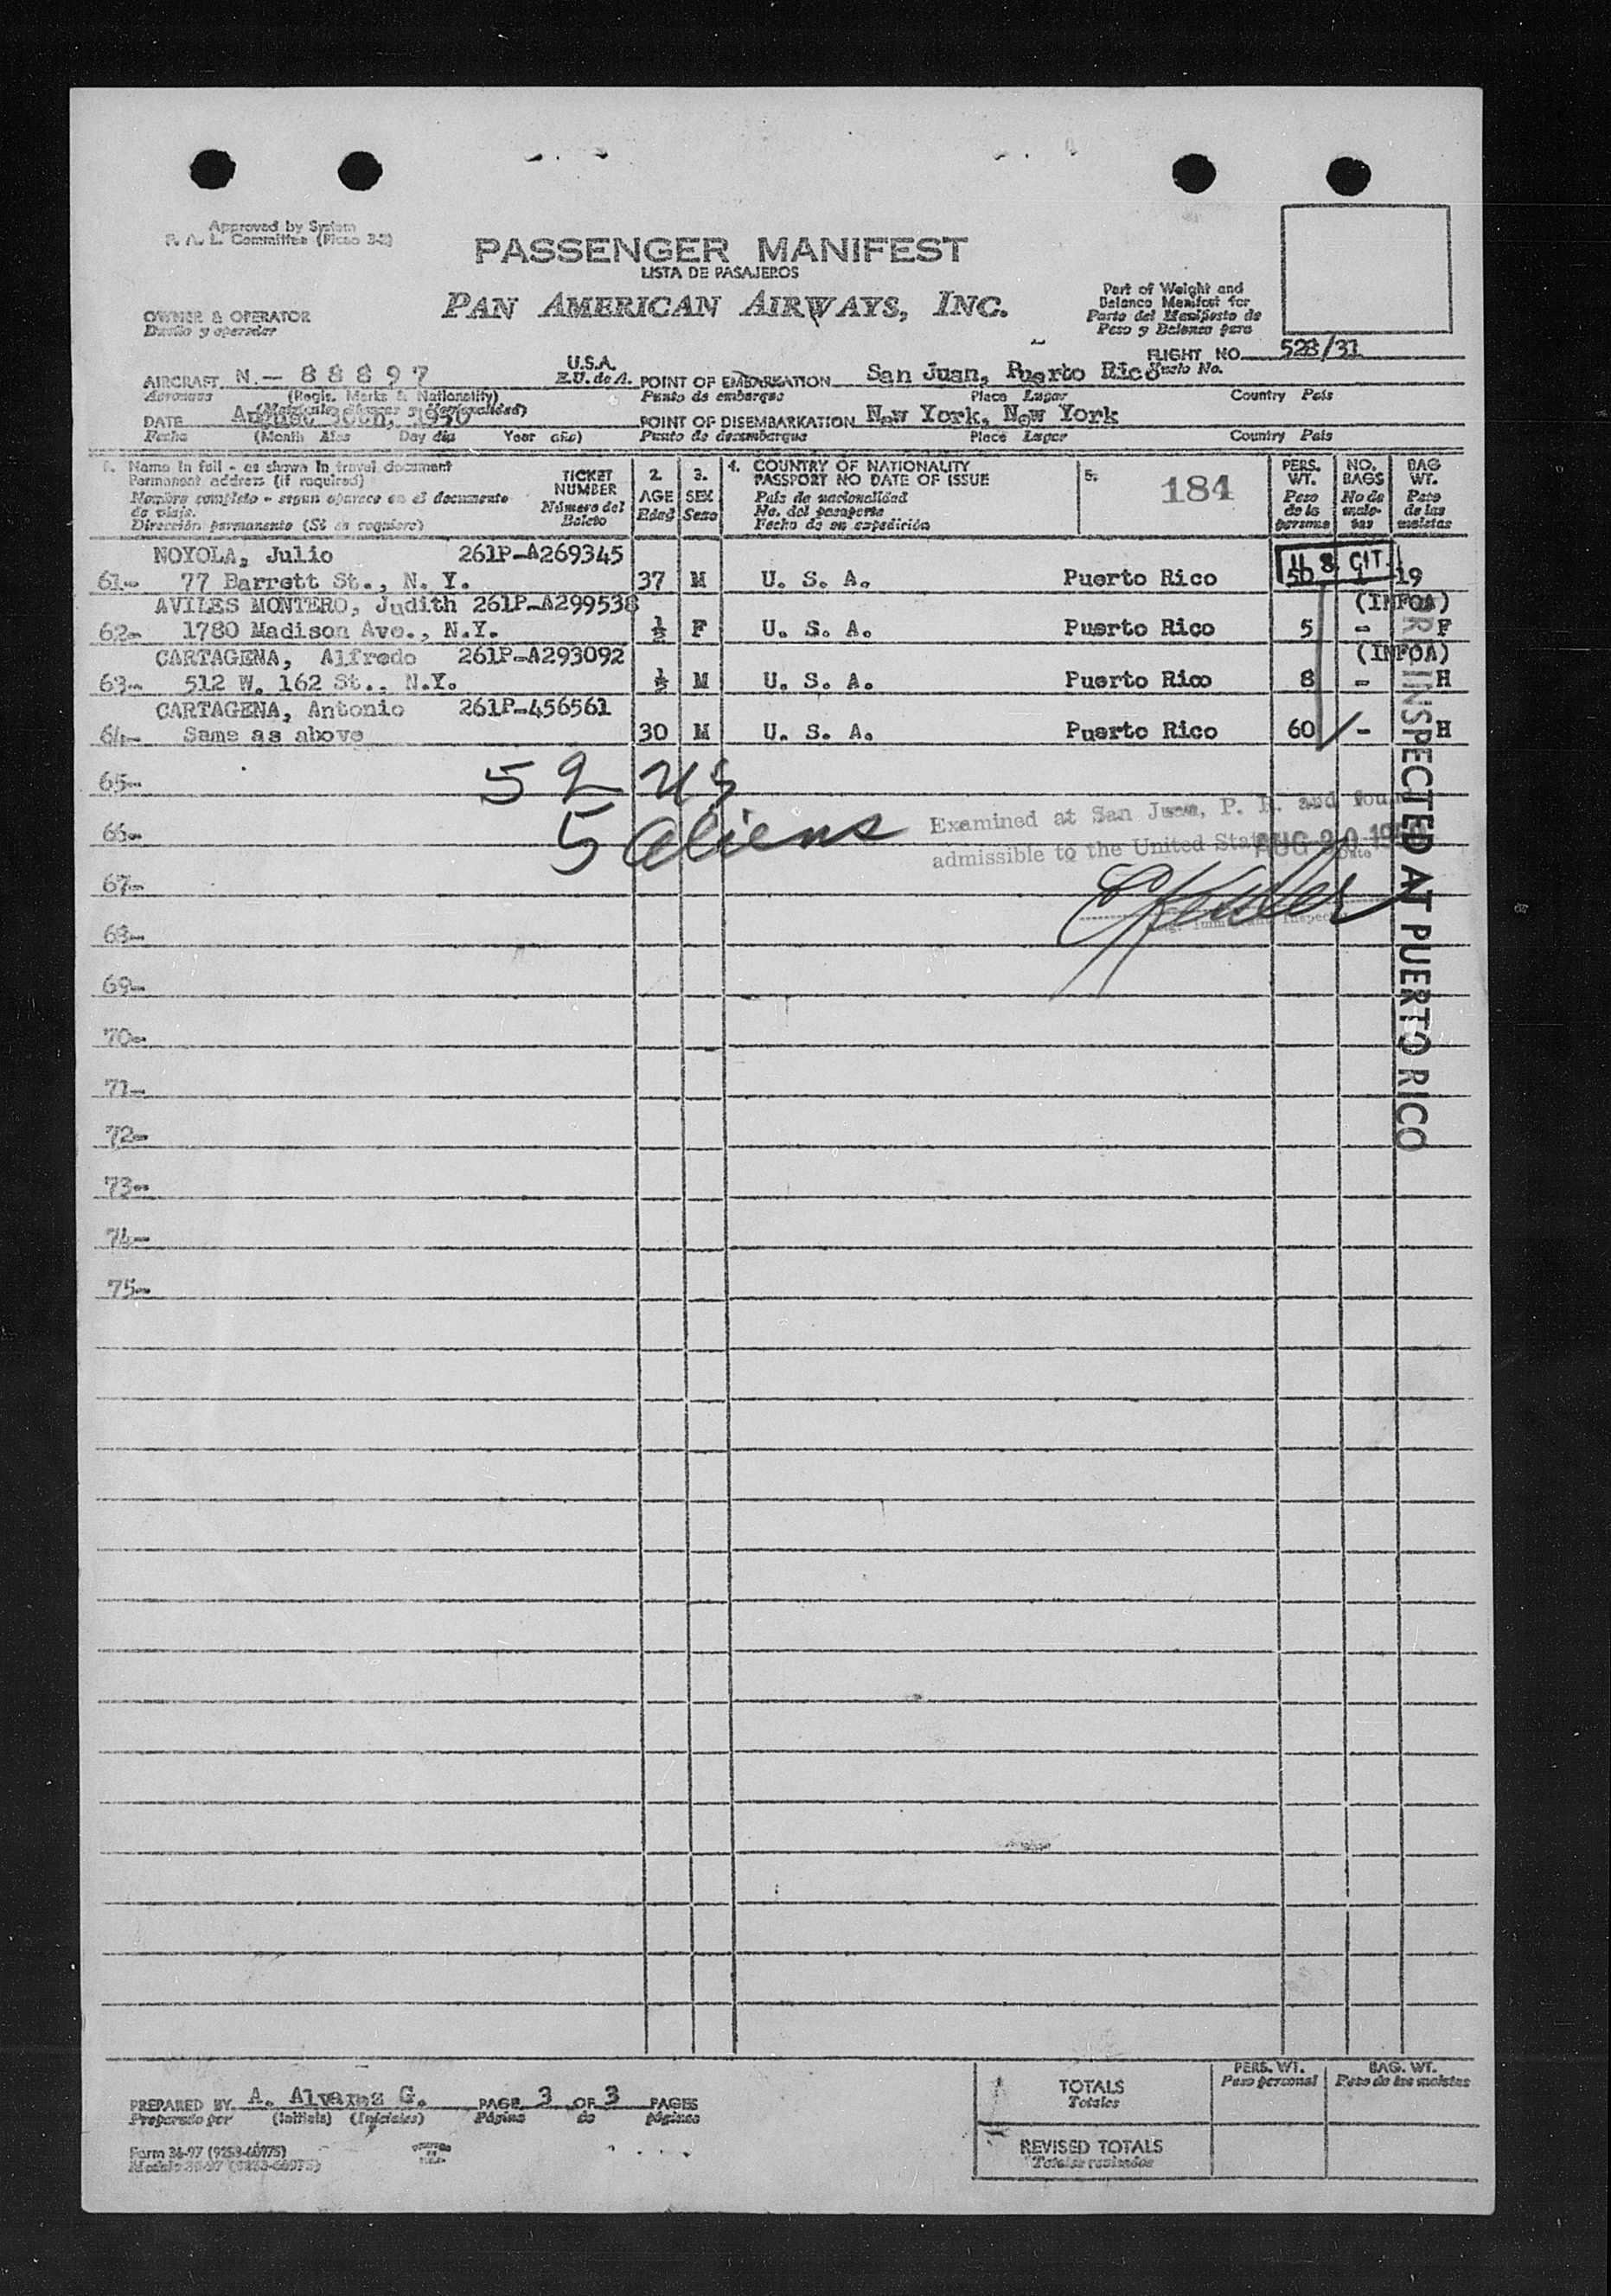 Approved by System
P. A. L. Committee
PASSENGER MANIFEST
LISTA DE PASAJEROS
PAN AMERICAN AIRWAYS, INC.
OWNER & OPERATOR
Dueño y operador
Part of Weight and
Balance Manifest for
Parte del Manifiesto de
Peso y Balance para
FLIGHT NO. 528/31
Vuelo No.
AIRCRAFT N.- 88897 U.S.A.
Aeronave (Regis. Marks & Nationality) E.U. de A.
POINT OF EMBARKATION San Juan, Puerto Rico
Punto de embarque Place Lugar Country País
DATE August 30th, 1950
Fecha (Month Mes Day día Year año)
POINT OF DISEMBARKATION New York, New York
Punto de desembarque Place Lugar Country País
1. Name in full - as shown in travel document
Permanent address (if required)
Nombre completo - segun aparece en el documento
de viaje.
Dirección permanente (Si se requiere)
TICKET
NUMBER
Número del
Boleto
2.
AGE
Edad
3.
SEX
Sexo
4. COUNTRY OF NATIONALITY
PASSPORT NO DATE OF ISSUE
País de nacionalidad
No. del pasaporte
Fecha de su expedición
5. 184
PERS.
WT.
Peso
de la
persona
NO.
BAGS
No de
male-
tas
BAG
WT.
Peso
de las
maletas
NOYOLA, Julio 261P-A269345 U S CIT.
61- 77 Barrett St., N. Y. 37 M U. S. A. Puerto Rico 50 1 19
AVILES MONTERO, Judith 261P-A299538 (INFOA)
62- 1780 Madison Ave., N.Y. ½ F U. S. A. Puerto Rico 5 - F
CARTAGENA, Alfredo 261P-A293092 (INFOA)
63- 512 W. 162 St., N.Y. ½ M U. S. A. Puerto Rico 8 - H
CARTAGENA, Antonio 261P-456561
64- Same as above 30 M U. S. A. Puerto Rico 60 - H
65- 52 US
66- 5 aliens
Examined at San Juan, P. R. and found
admissible to the United States AUG 30 1950
Date
67-
68-
69-
70-
71-
72-
73-
74-
75-
INSPECTED AT PUERTO RICO
PREPARED BY A. Alvarez G. PAGE 3 OF 3 PAGES
Preparado por (Initials) (Iniciales) Página de páginas
Form 36-97 (9253-60975)
TOTALS
Totales
PERS. WT.
Peso personal
BAG. WT.
Peso de las maletas
REVISED TOTALS
Totales revisados